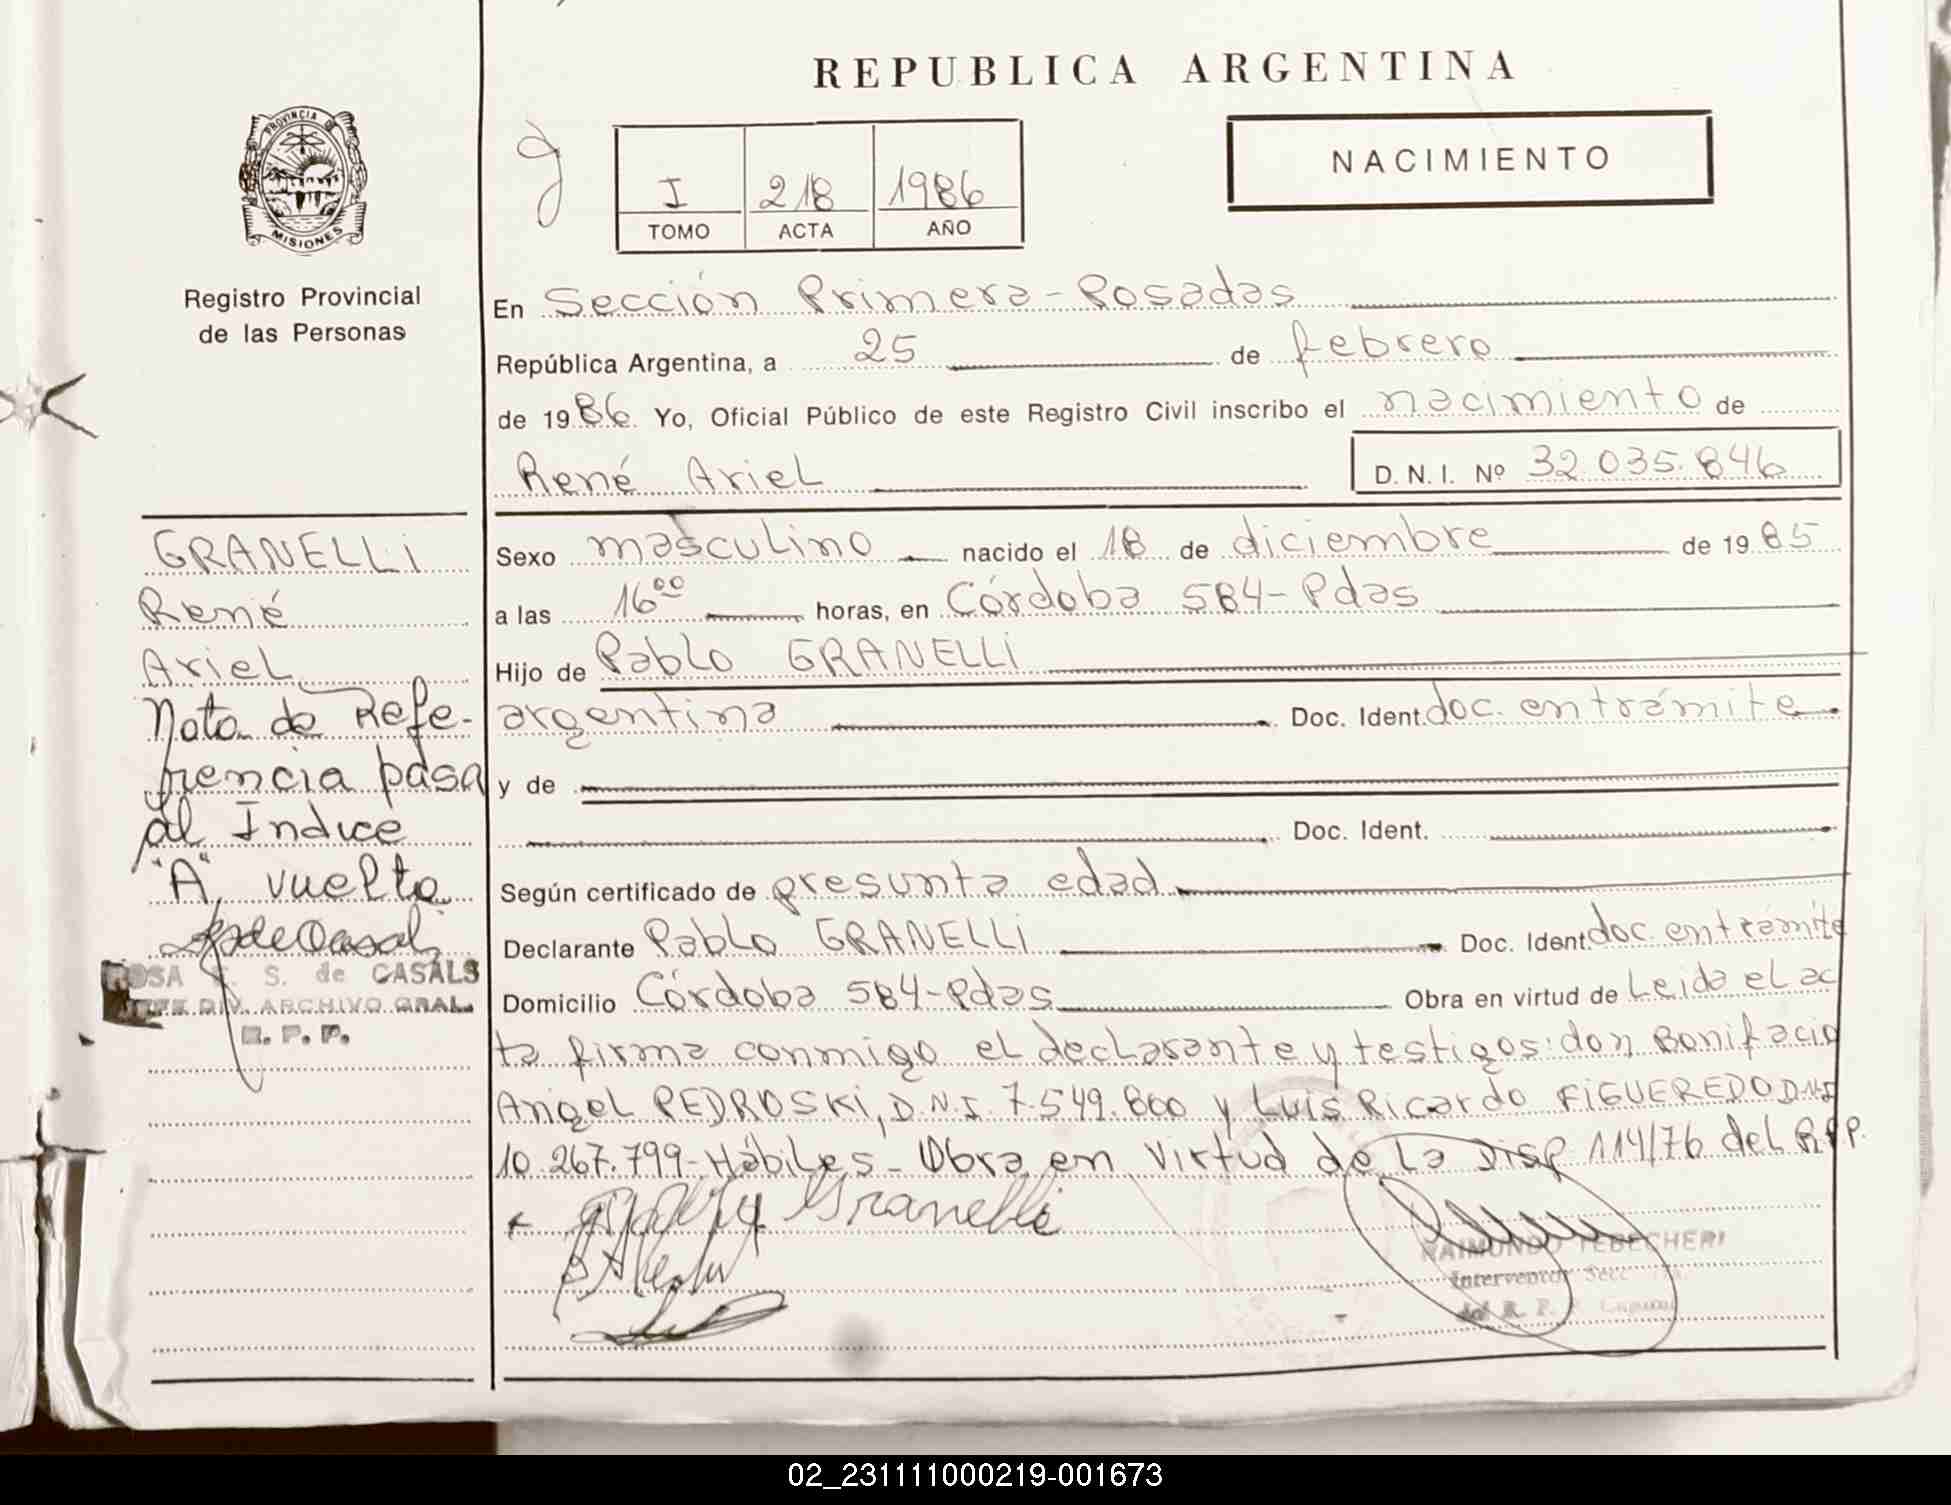 REPUBLICA ARGENTINA
PROVINCIA DE
MISIONES
Registro Provincial
de las Personas
I 218 1986
TOMO ACTA AÑO
NACIMIENTO
En Sección Primera - Posadas
República Argentina, a 25 de febrero
de 1986 Yo, Oficial Público de este Registro Civil inscribo el nacimiento de
René Ariel
D. N. I. Nº 32.035.846
GRANELLi
René
Ariel
Nota de Refe-
rencia pasa
al Indice
"A" vuelta
ROSA S. de CASALS
JEFE DIV. ARCHIVO GRAL.
R. P. P.
Sexo masculino nacido el 18 de diciembre de 1985
a las 16⁰⁰ horas, en Córdoba 584 - Pdas
Hijo de Pablo GRANELLi
argentina Doc. Ident. doc. en trámite
y de
Doc. Ident.
Según certificado de presunta edad
Declarante Pablo GRANELLi Doc. Ident. doc. en trámite
Domicilio Córdoba 584 - Pdas Obra en virtud de Leida el ac
ta firma conmigo el declarante y testigos: don Bonifacio
Angel PEDROSKi, D.N.I. 7.549.800 y Luis Ricardo FiGUEREDO DNI
10.267.799 - Hábiles - Obra en virtud de la Disp 114/76 del R.P.P.
Granelli
RAIMUNDO TEBECHERI
Interventor Secc
del R. P. P. Capital
02_231111000219-001673